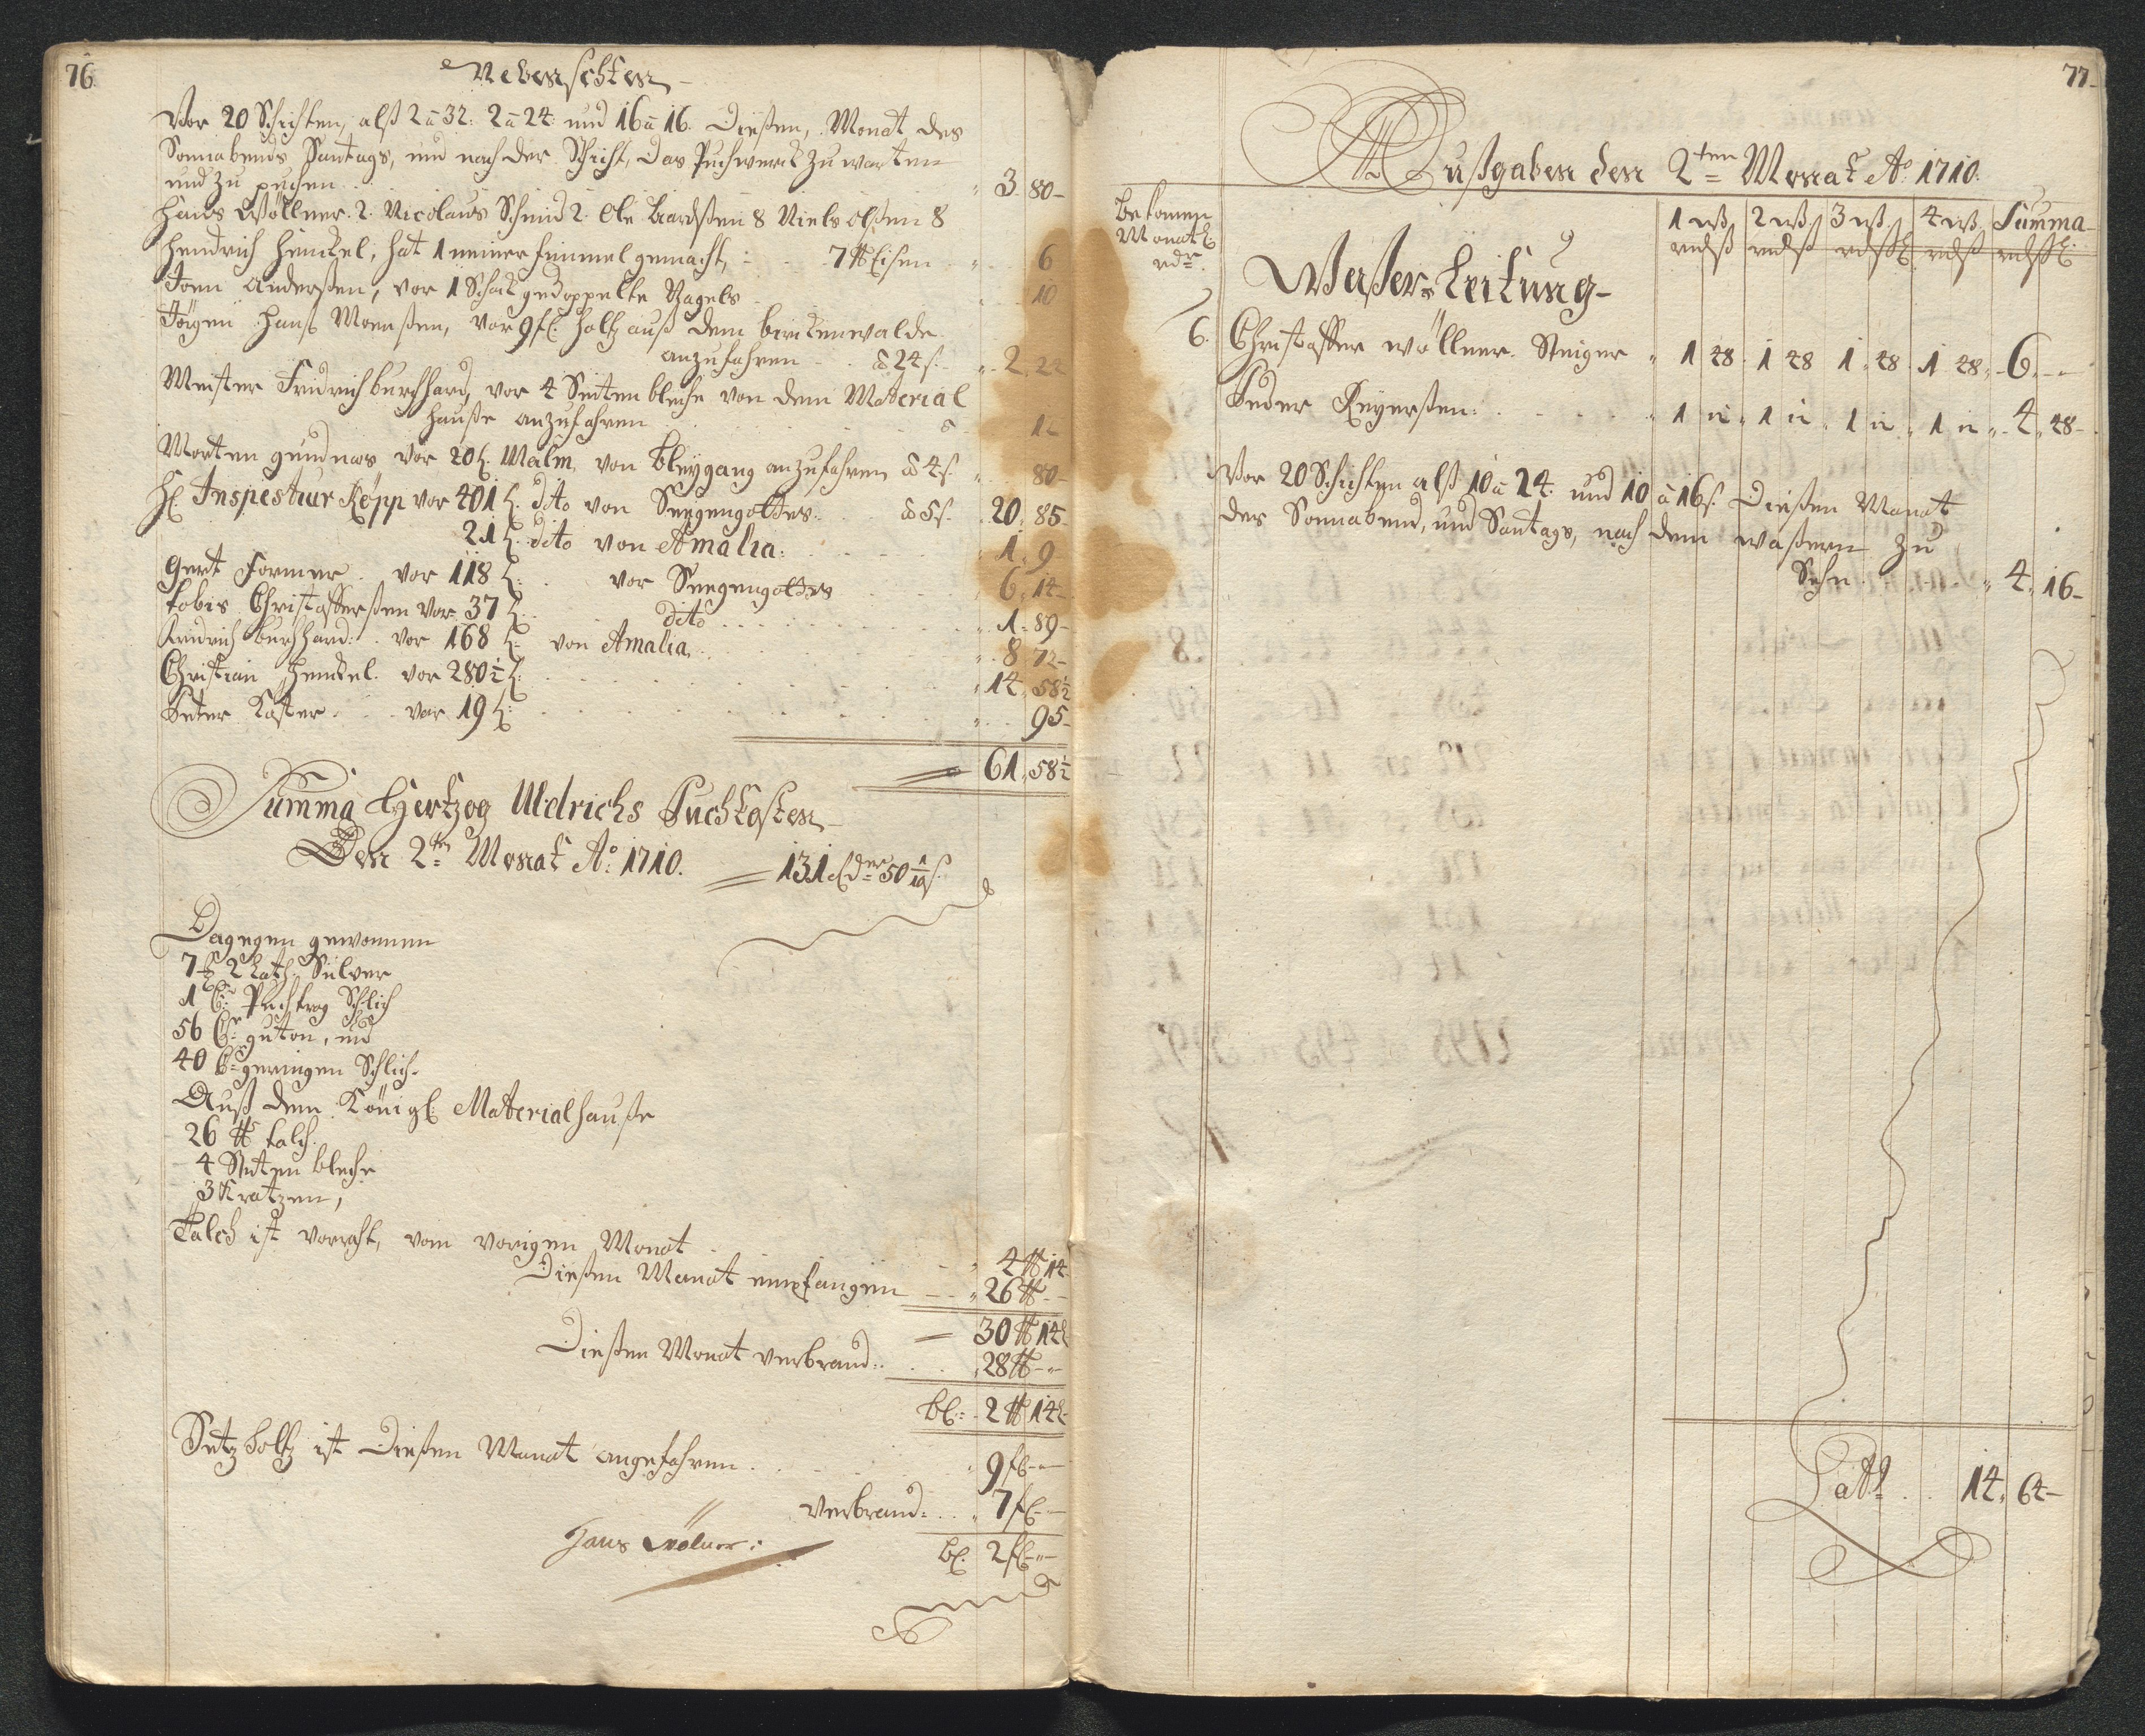 76.
Nebenschten
Vor 20 Schichten, alß 2 â 32: 2 â 24: und 16 â 16. Dießen, Monat des
Sonnabends Santags, und nach der Schicht, das Puchwerck zu warten
und zu puchen " 3. 80-
Hans Wöllner. 2. Nicolaus Schmid 2. Ole 8 Niels Olßen 8
Hendrich Henckel, hat 1 neinen fimmel gemacht, 7 ℔ Eisen " 6
Joen Anderßen, vor 1 Schock gedoppelte Nagels 10
Hans Monßen, vor 9 fl: Holtz auß dem birckenwalde
anzufahren â 24 s. " 2. 24
Meister Fridrich burchhard, vor 4 Seiten bleche von dem Material
hauße anzufahren 12
Morten vor 20 Malm, von Bleygang anzufahren â 4 s. 80-
H: Inspecteur Röpp vor 401 dito von Seegengottes. â 5 s. 20. 85-
21 dito von Amalia: 1. 9
Gert Former vor 118 vor Seegengottes 6. 14-
Tobis Christofferßen vor 37 dito 1. 89-
Fridrich burchhard: vor 168 von Amalia, 8 72-
Christian Henckel. vor 280½ 14. 58½
Peter Koster. vor 19 95-
61. 58½
Summa Hertzog Uldrichs Puchkosten
Den 2ten Monat Ao: 1710. 131 50 1/10 s.
Dagegen gewonnen
7 2 Lath. Silver
1 Puchtrog Schlich
56 guten, und
40 geringen Schlich.
Auß dem Königl: Materialhauße
26 ℔ talch.
4 Seiten bleche
3 Kratzen,
Talch ist vorraht, vom vorigen Monat 4 ℔ 14
Dießen Monat empfangen 26 ℔
30 ℔ 14
Dießen Monat verbrand: 28 ℔
bl: 2 ℔ 14
Setz holtz ist Dießen Monat angefahren 9 fl
verbrand: 7 fl
bl: 2 fl
Hans Wölner:
77.
Außgaben den 2ten Monat Ao: 1710.
Bekomen
Monatl
rdr.
1 wß 2 wß 3 wß 4 wß Summa
Waßer-Leitung-
6. Christoffer Wöllner. Steiger " 1 48. 1 48 1. 48 1 48. 6.--
Peder Reyerßen: 1 12 " 1 12 " 1 12 " 1 12 " 4. 48-
Vor 20 Schichten alß 10 â 24: und 10 â 16 s. Dießen Monat
des Sonnabend, und Santags, nach dem waßern zu
Sehn " 4. 16-
Latt 14. 64-